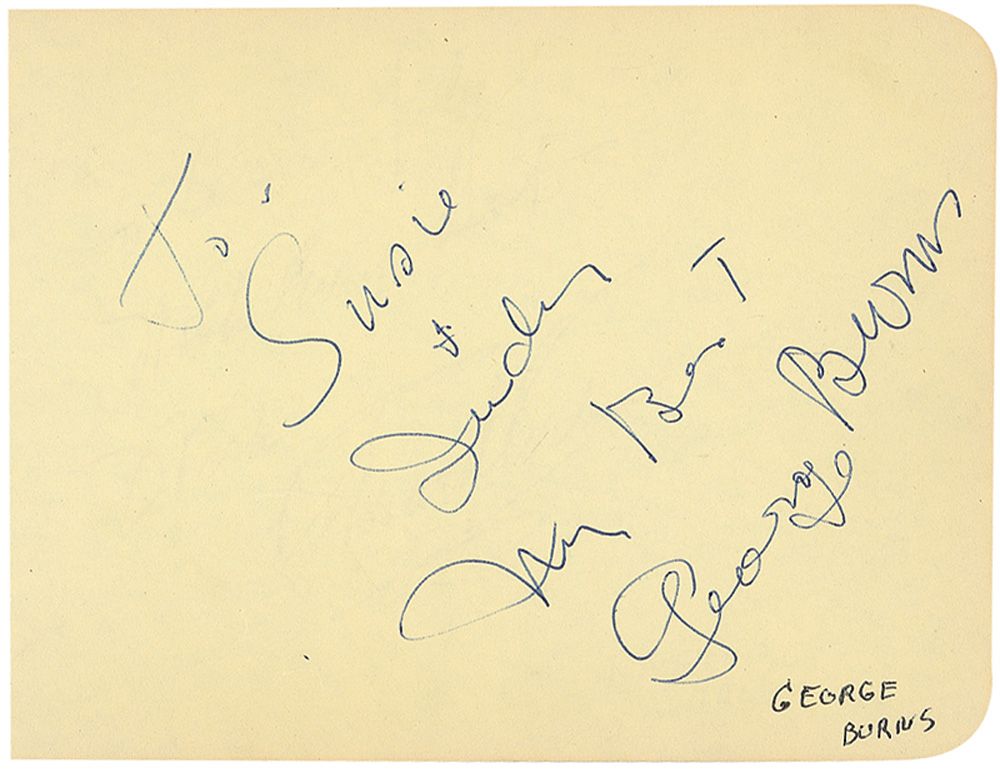 To Susie
+ Judy
My Best
George Burns
GEORGE
BURNS